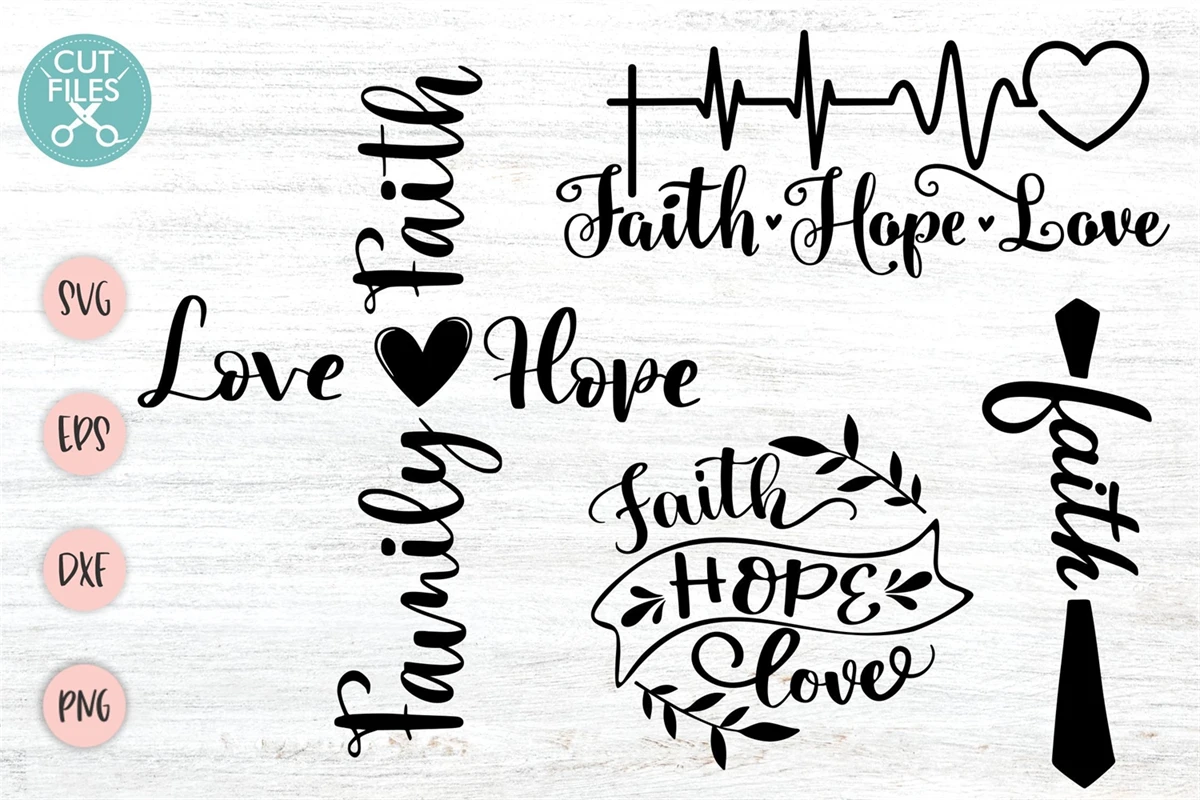 CUT
FILES
SVG
EPS
DXF
PNG
Faith
Love Hope
Family
Faith Hope Love
Faith
HOPE
Love
faith